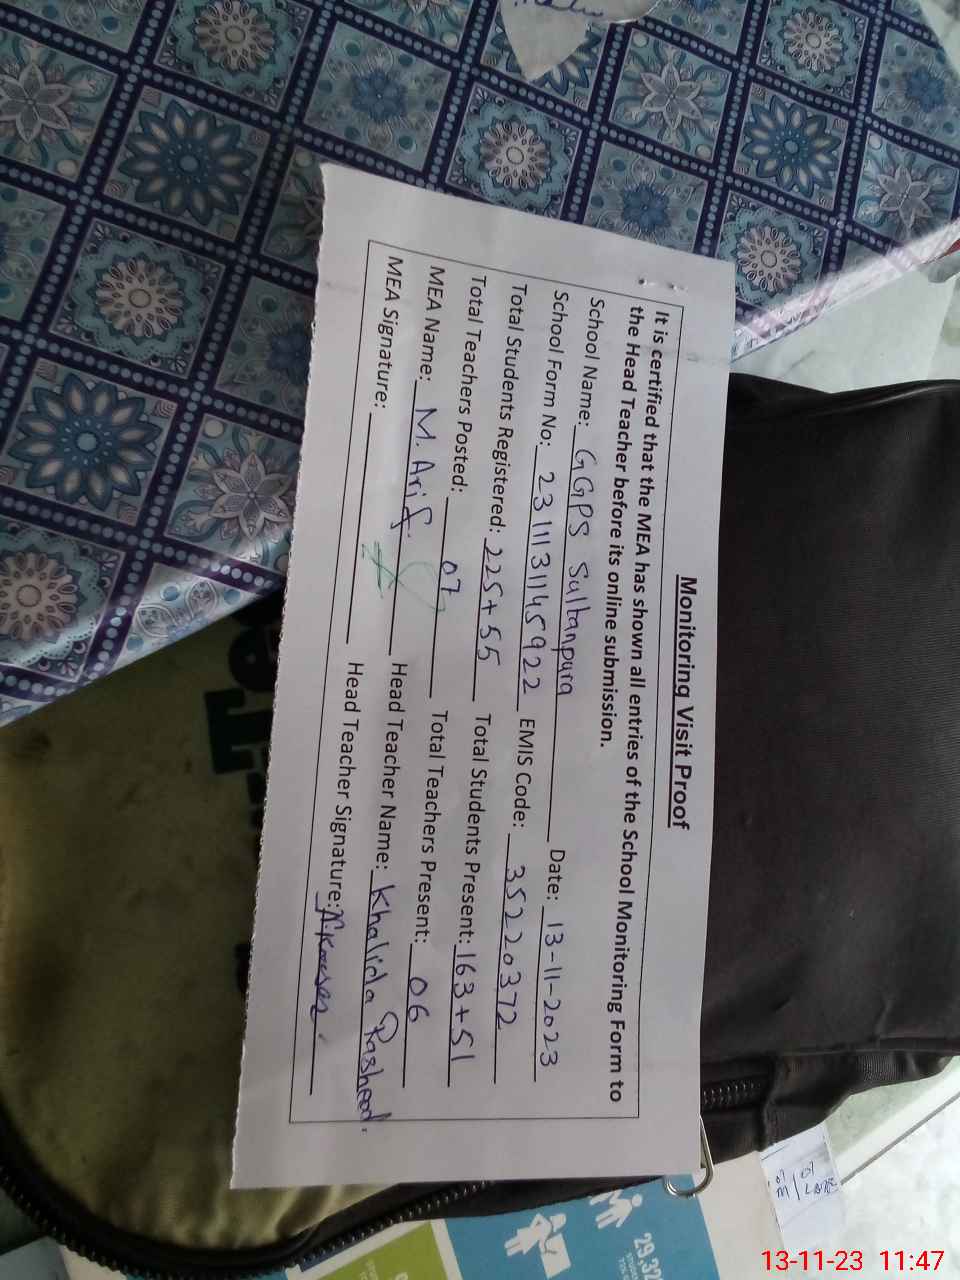 Monitoring Visit Proof
It is certified that the MEA has shown all entries of the School Monitoring Form to
the Head Teacher before its online submission.
School Name: GGPS Sultanpura Date: 13-11-2023
School Form No: 2311131145922 EMIS Code: 35220372
Total Students Registered: 225+55 Total Students Present: 163+51
Total Teachers Posted: 07 Total Teachers Present: 06
MEA Name: M. Arif Head Teacher Name: Khalida Rasheed.
MEA Signature: Head Teacher Signature:
29,32
13-11-23 11:47